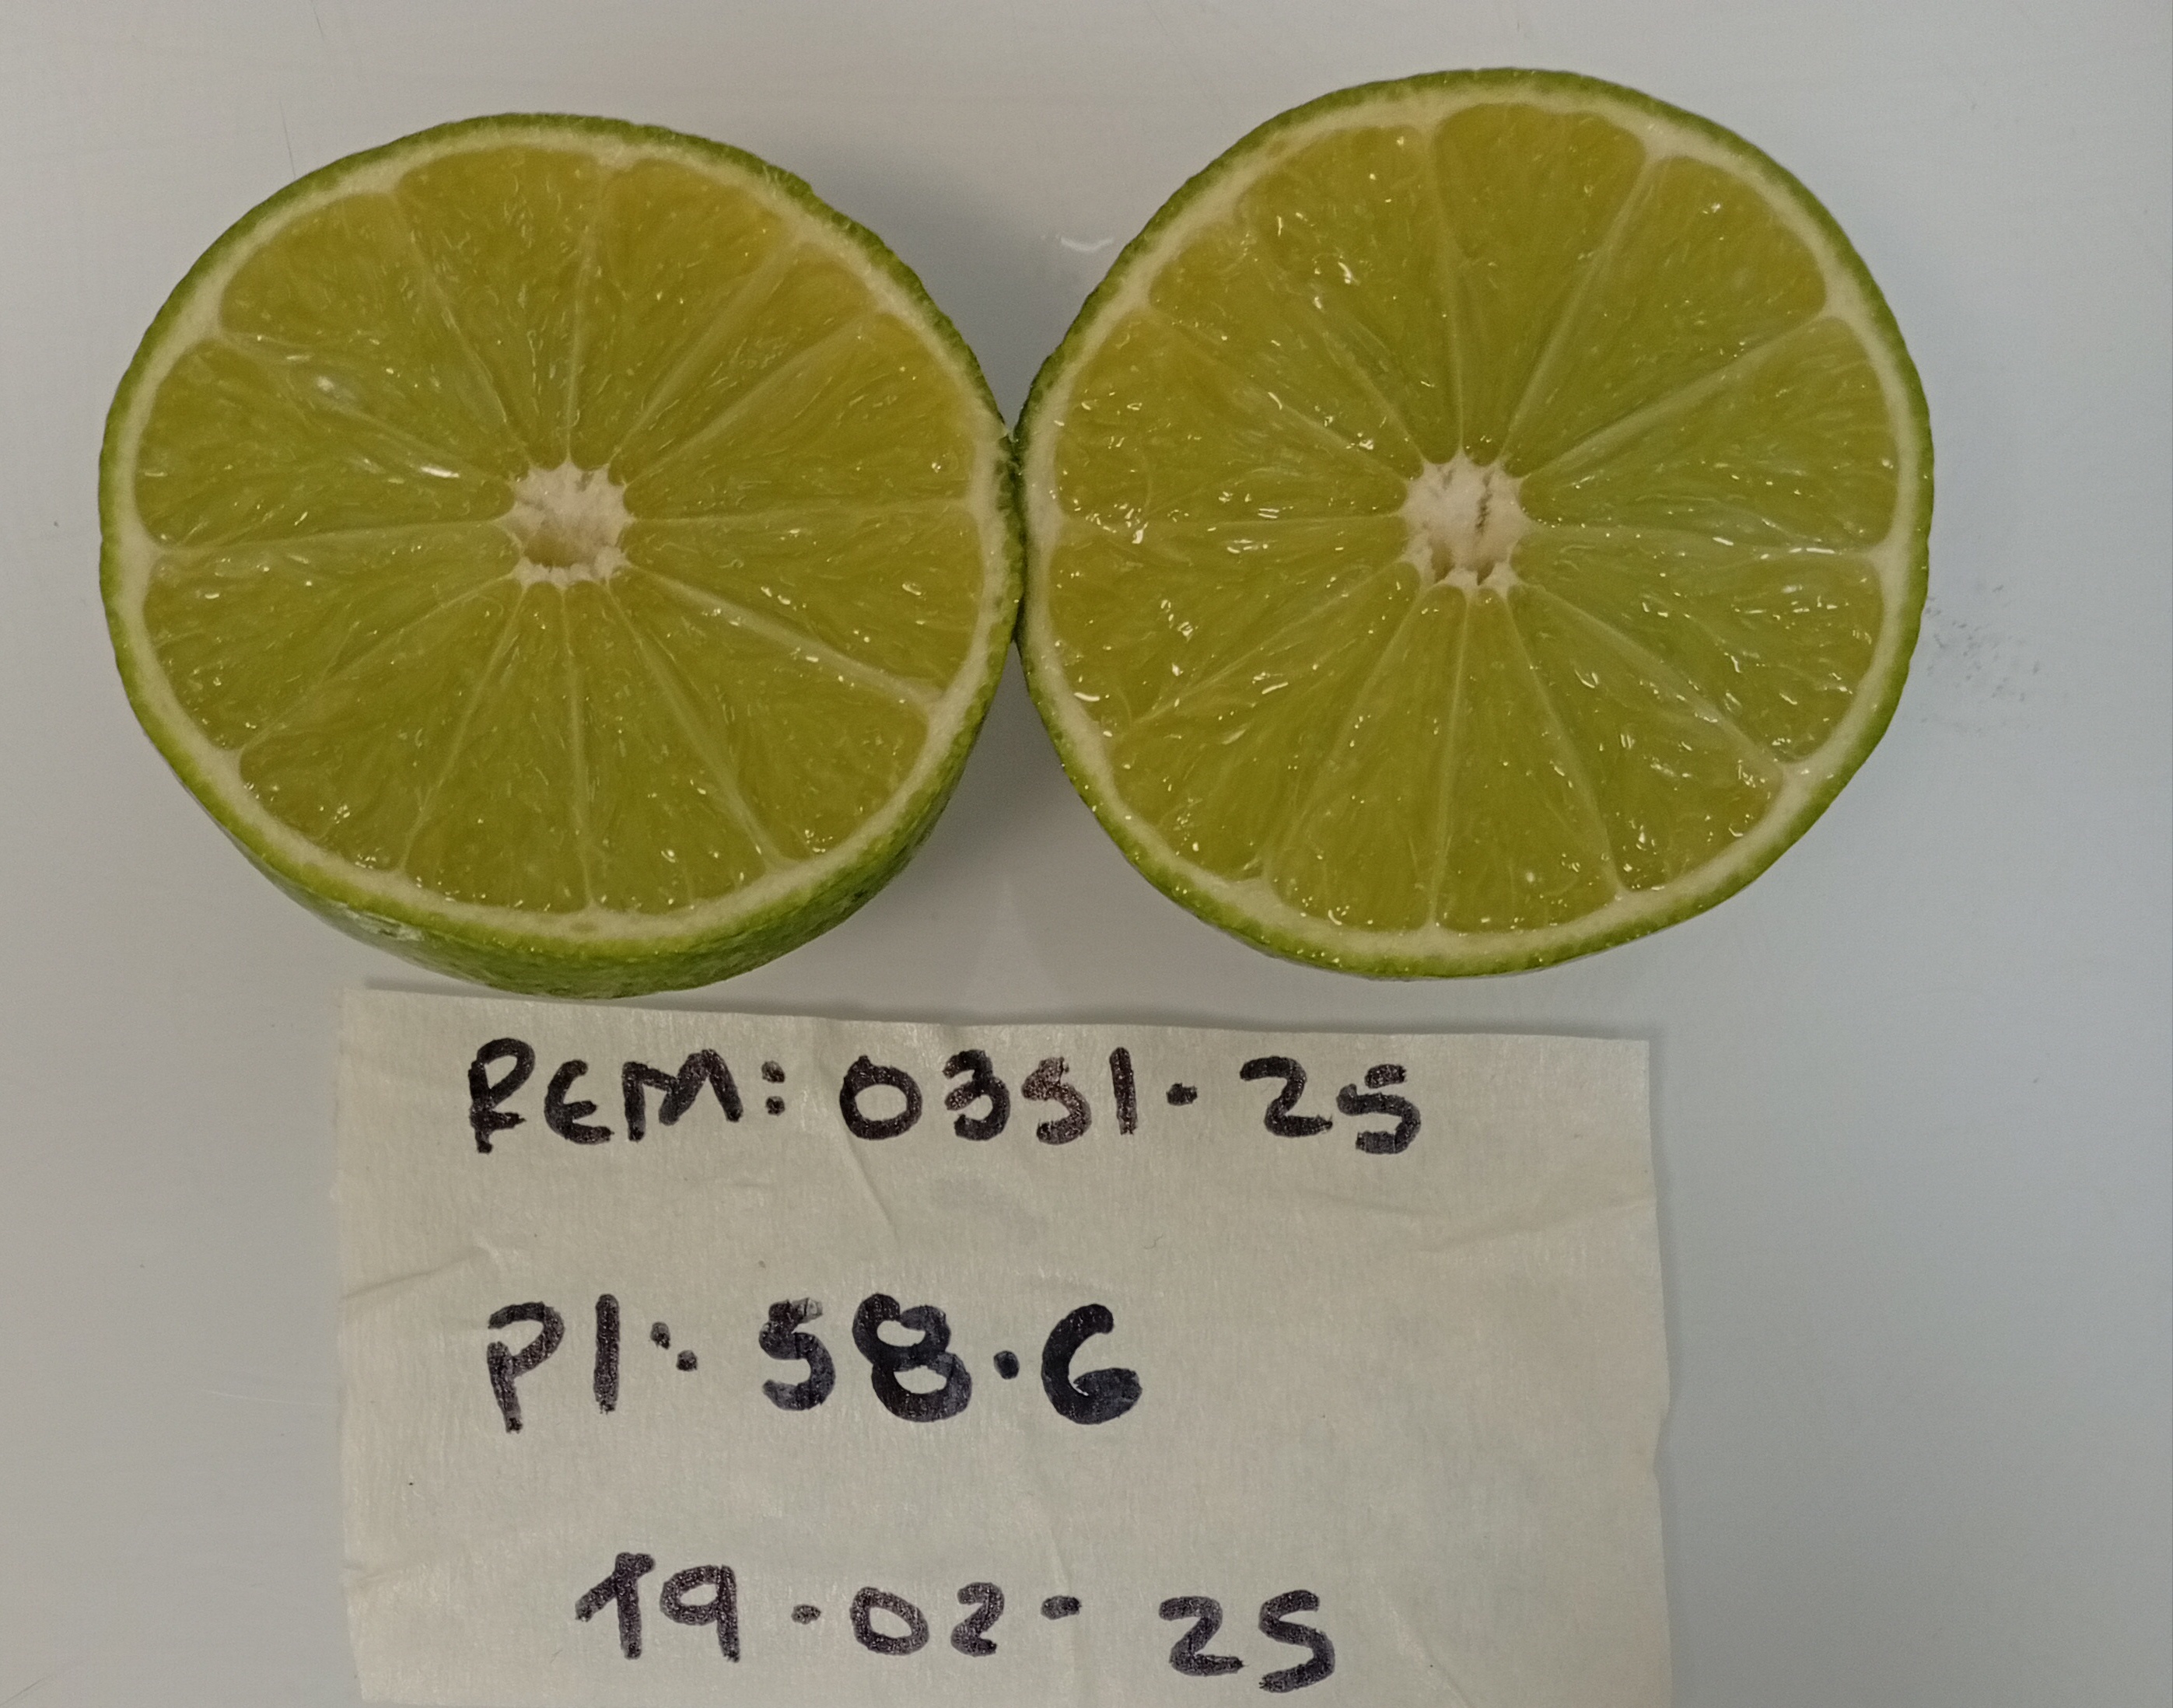 REM: 0351-25
P1: 58.6
19-02-25